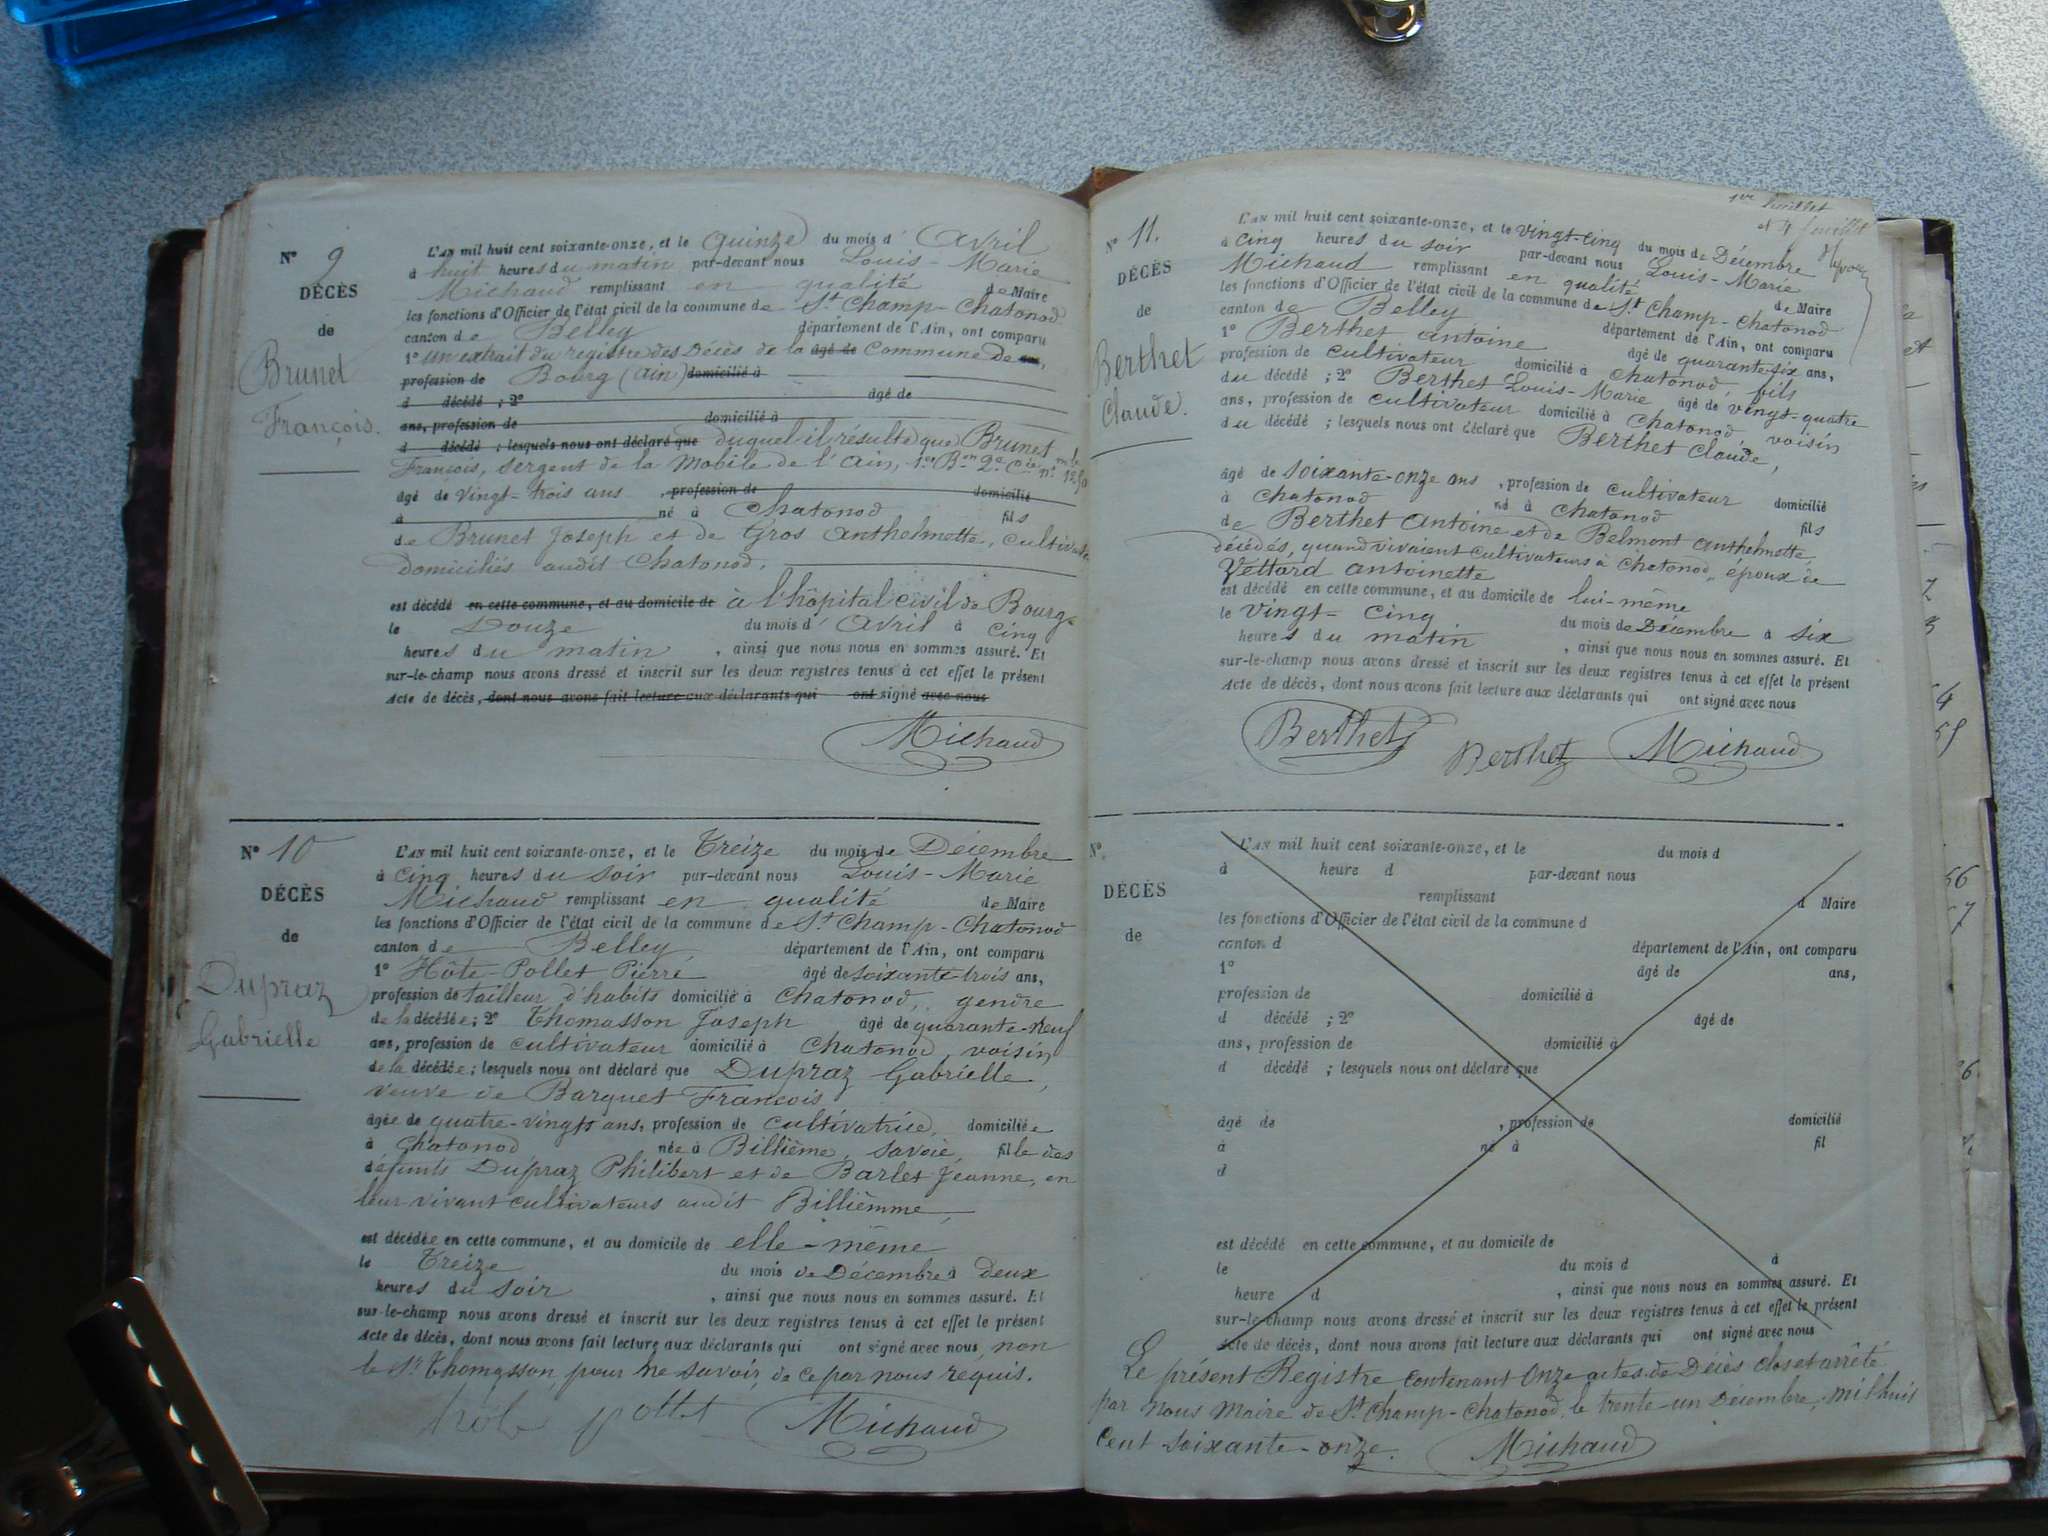 N° 9
DÉCÈS
de
Brunet
François.
L'AN mil huit cent soixante-onze, et le quinze du mois d'Avril
à huit heures du matin par-devant nous Louis-Marie
Michaud remplissant en qualité de Maire
les fonctions d'Officier de l'état civil de la commune de St Champ-Chatonod
canton de Belley département de l'Ain, ont comparu
1° un extrait du registre des Décès de la âgé de Commune de ans,
profession de Bourg (Ain) domicilié à
d décédé ; 2° âgé de
ans, profession de domicilié à
d décédé ; lesquels nous ont déclaré que duquel il résulte que Brunet
François, sergent de la Mobile de l'Ain, 1er Bon 2e Cie
âgé de vingt-trois ans, profession de domicilié
à né à Chatonod fils
de Brunet Joseph et de Gros Anthelmette,
domiciliés audit Chatonod,
est décédé en cette commune, et au domicile de à l'hôpital civil de Bourg
le Douze du mois d'Avril à cinq
heures du matin, ainsi que nous nous en sommes assuré. Et
sur-le-champ nous avons dressé et inscrit sur les deux registres tenus à cet effet le présent
Acte de décès, dont nous avons fait lecture aux déclarants qui ont signé avec nous
Michaud
N° 10
DÉCÈS
de
Dupraz
Gabrielle
L'AN mil huit cent soixante-onze, et le Treize du mois de Décembre
à cinq heures du soir par-devant nous Louis-Marie
Michaud remplissant en qualité de Maire
les fonctions d'Officier de l'état civil de la commune de St Champ-Chatonod
canton de Belley département de l'Ain, ont comparu
1° Hôte-Pollet Pierre âgé de soixante-trois ans,
profession de tailleur d'habits domicilié à Chatonod, gendre
de la décédée ; 2° Thomasson Joseph âgé de quarante-neuf
ans, profession de cultivateur domicilié à Chatonod, voisin
de la décédée ; lesquels nous ont déclaré que Dupraz Gabrielle,
veuve de Barquet François
âgée de quatre-vingts ans, profession de cultivatrice, domiciliée
à Chatonod née à Billième, Savoie, fille des
défunts Dupraz Philibert et de Barlet Jeanne, en
leur vivant cultivateurs audit Billièmme,
est décédée en cette commune, et au domicile de elle-même
le Treize du mois de Décembre à deux
heures du soir, ainsi que nous nous en sommes assuré. Et
sur-le-champ nous avons dressé et inscrit sur les deux registres tenus à cet effet le présent
Acte de décès, dont nous avons fait lecture aux déclarants qui ont signé avec nous, non
le Sr Thomasson, pour ne savoir, de ce par nous requis.
hôte pollet Michaud
N° 11.
DÉCÈS
de
Berthet
Claude.
L'AN mil huit cent soixante-onze, et le vingt-cinq du mois de Décembre
à cinq heures du soir par-devant nous Louis-Marie
Michaud remplissant en qualité de Maire
les fonctions d'Officier de l'état civil de la commune de St Champ-Chatonod
canton de Belley département de l'Ain, ont comparu
1° Berthet Antoine âgé de quarante-six ans,
profession de cultivateur domicilié à Chatonod, fils
du décédé ; 2° Berthet Louis-Marie âgé de vingt-quatre
ans, profession de cultivateur domicilié à Chatonod, voisin
du décédé ; lesquels nous ont déclaré que Berthet Claude,
âgé de soixante-onze ans, profession de cultivateur domicilié
à Chatonod né à Chatonod fils
de Berthet Antoine et de Belmont Anthelmette,
décédés, quand vivaient cultivateurs à Chatonod, époux de
Vettard Antoinette
est décédé en cette commune, et au domicile de lui-même
le vingt-cinq du mois de Décembre à six
heures du matin, ainsi que nous nous en sommes assuré. Et
sur-le-champ nous avons dressé et inscrit sur les deux registres tenus à cet effet le présent
Acte de décès, dont nous avons fait lecture aux déclarants qui ont signé avec nous
Berthet Berthet Michaud
N°
DÉCÈS
de
L'AN mil huit cent soixante-onze, et le du mois d
à heure d par-devant nous
remplissant d Maire
les fonctions d'Officier de l'état civil de la commune d
canton d département de l'Ain, ont comparu
1° âgé de ans,
profession de domicilié à
d décédé ; 2° âgé de
ans, profession de domicilié à
d décédé ; lesquels nous ont déclaré que
âgé de , profession de domicilié
à né à fil
d
est décédé en cette commune, et au domicile de
le du mois d à
heure d , ainsi que nous nous en sommes assuré. Et
sur-le-champ nous avons dressé et inscrit sur les deux registres tenus à cet effet le présent
Acte de décès, dont nous avons fait lecture aux déclarants qui ont signé avec nous
Le présent Registre contenant onze actes de Décès clos et arrêté
par nous Maire de St Champ-Chatonod, le trente-un Décembre, mil huit
cent soixante-onze. Michaud